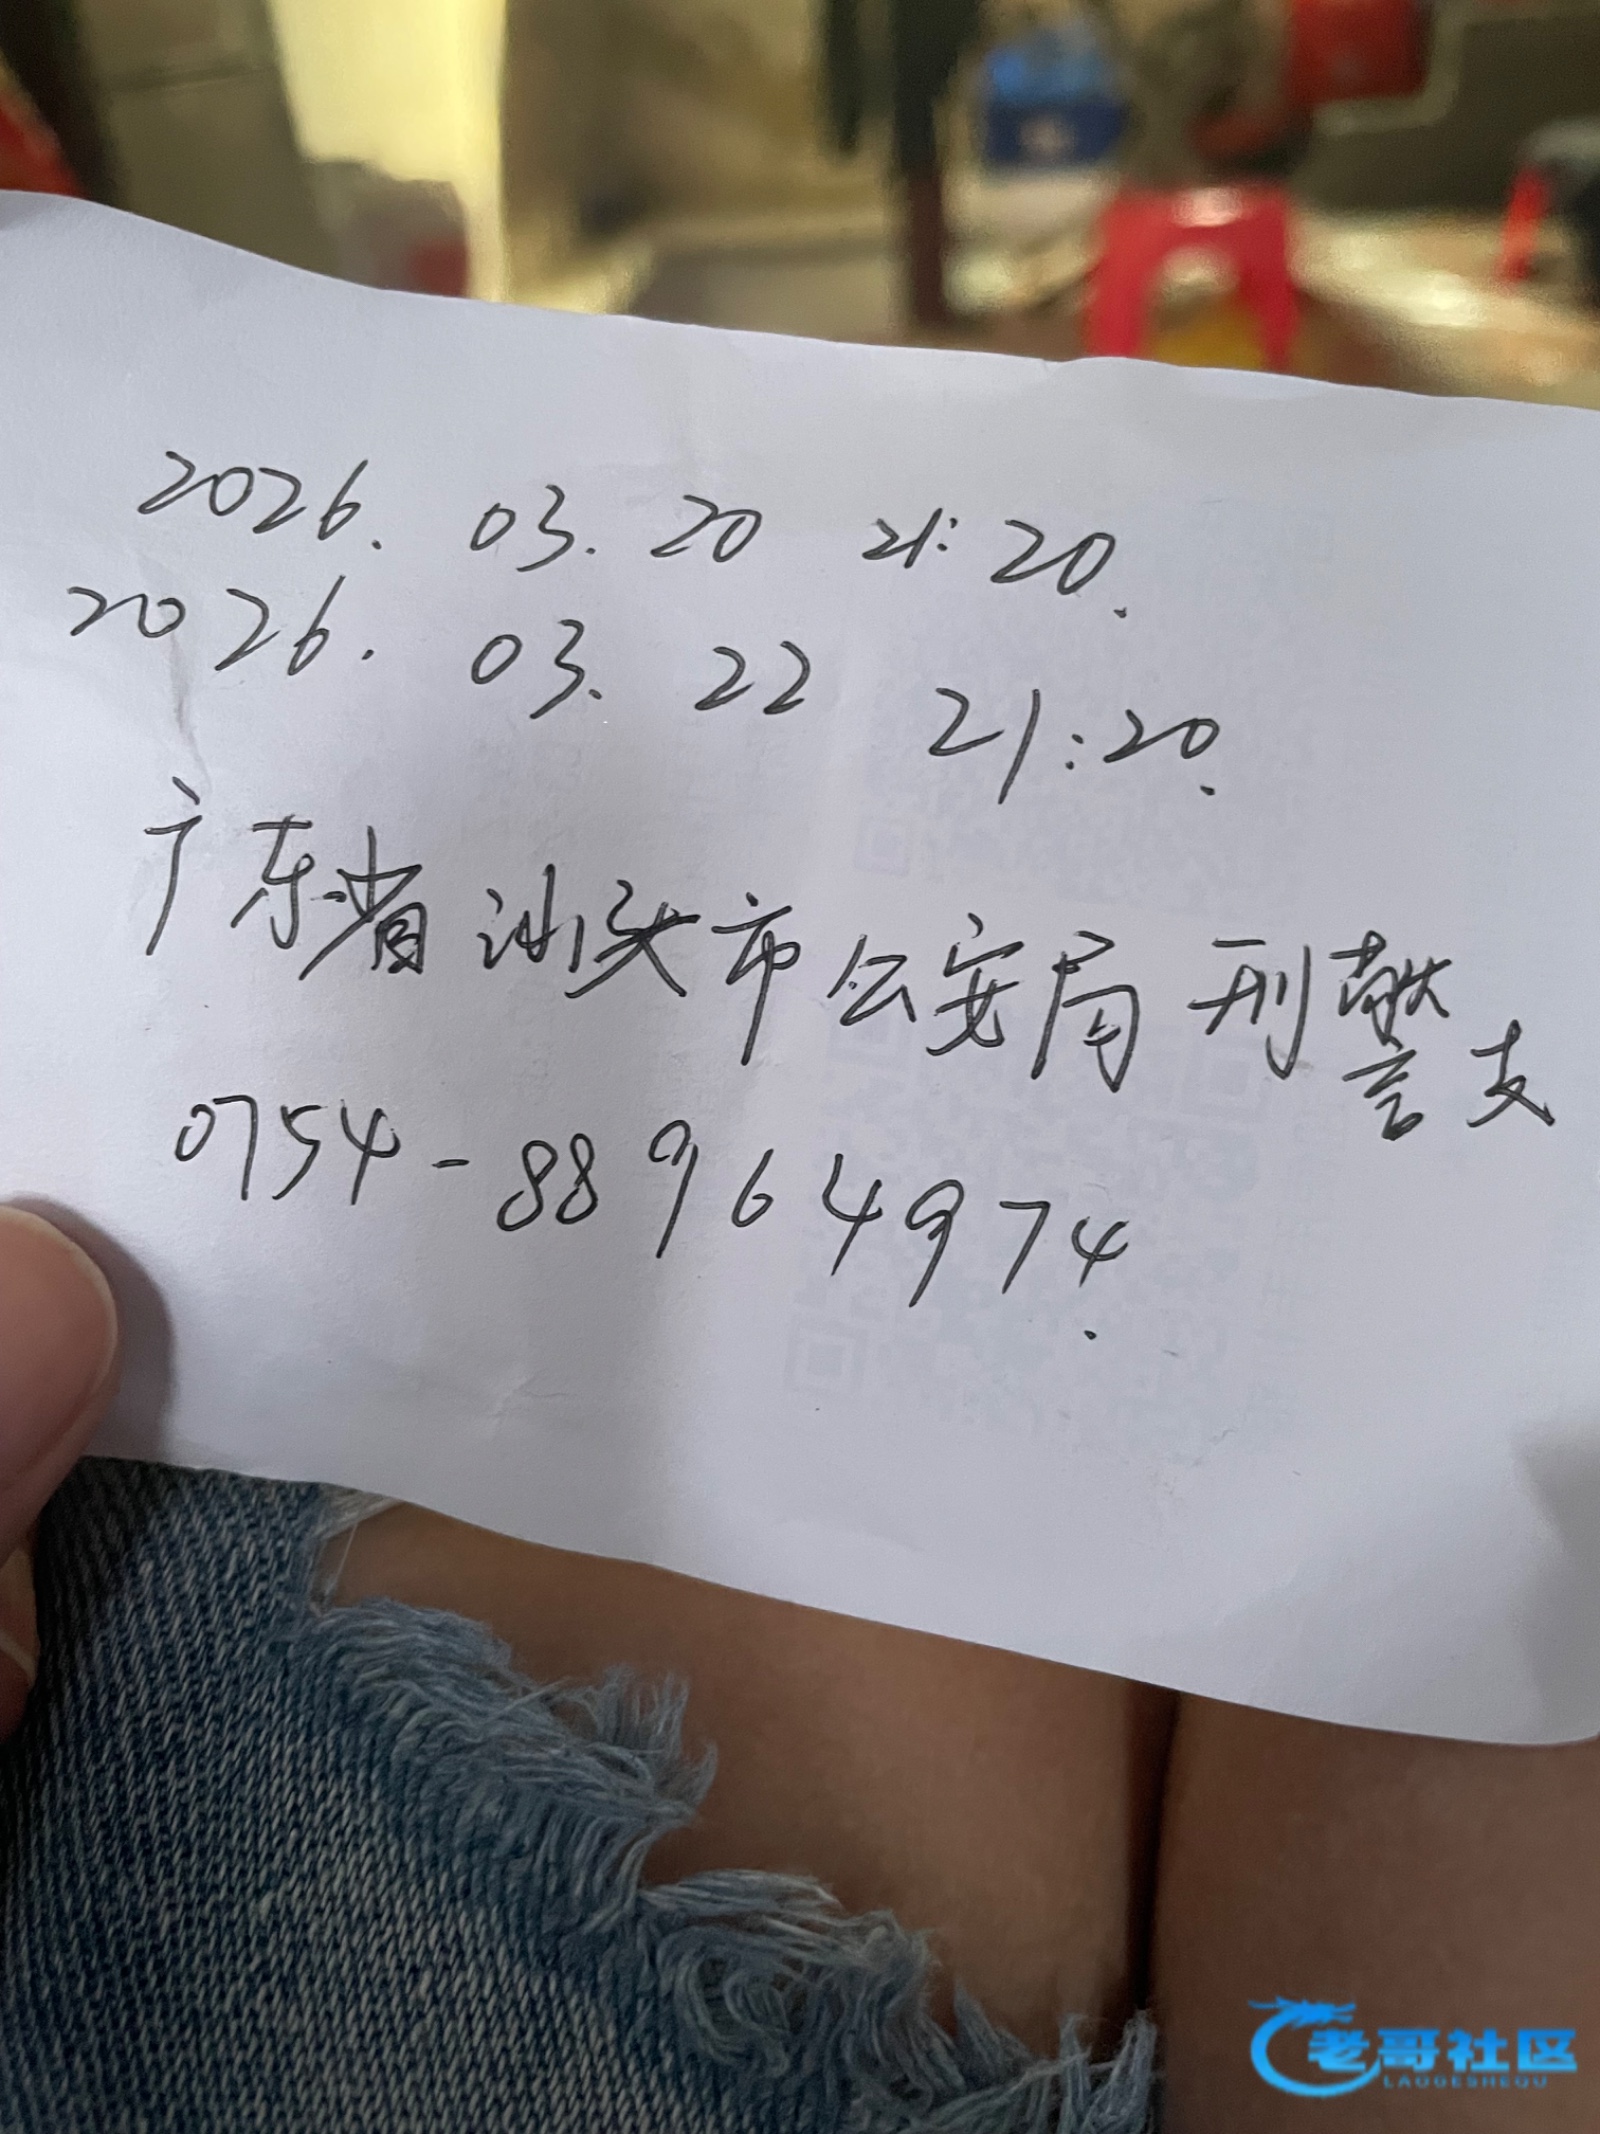 2026. 03. 20 21:20.
2026. 03. 22 21:20.
广东省汕头市公安局刑警支
0754-88964974.
老哥社区
LAOGESHEQU